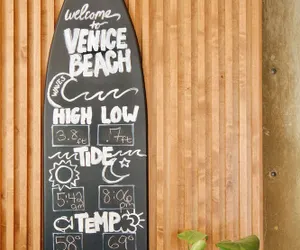 welcome
to
VENICE
BEACH
WAVES
HIGH LOW
3.8ft .7ft
TIDE
5:42 am 8:06 pm
TEMP
58° 69°